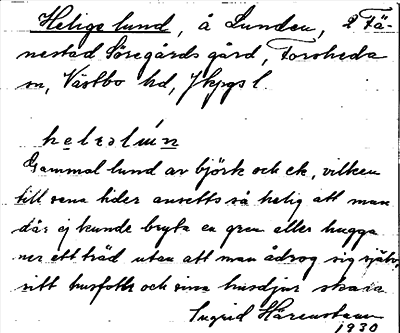 Helige lund, å Lunden, 2 Fä-
nestad Söregårds gård, Forsheda
sn, Västbo hd, Jkpgs l.
helɘlún
Gammal lund av björk och ek, vilken
till sena tider ansetts så helig att man
där ej kunde bryta en gren eller hugga
ner ett träd utan att man ådrog sig själv,
sitt husfolk och sina husdjur skada
Ingrid Härenstam
1930